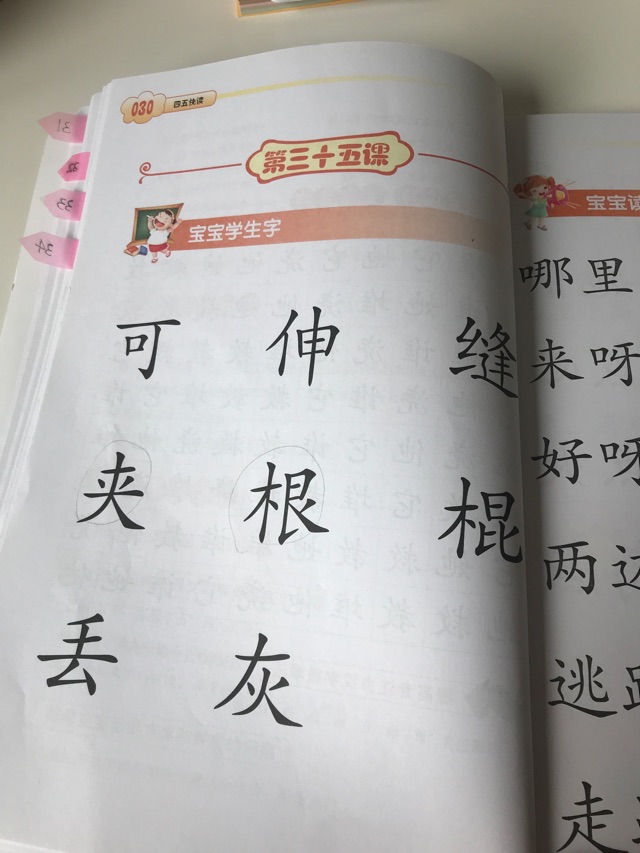 030 四五快读
第三十五课
宝宝学生字
可 伸 缝
夹 根 棍
丢 灰
31
32
33
34
宝宝
哪里
来呀
好呀
两
逃
走